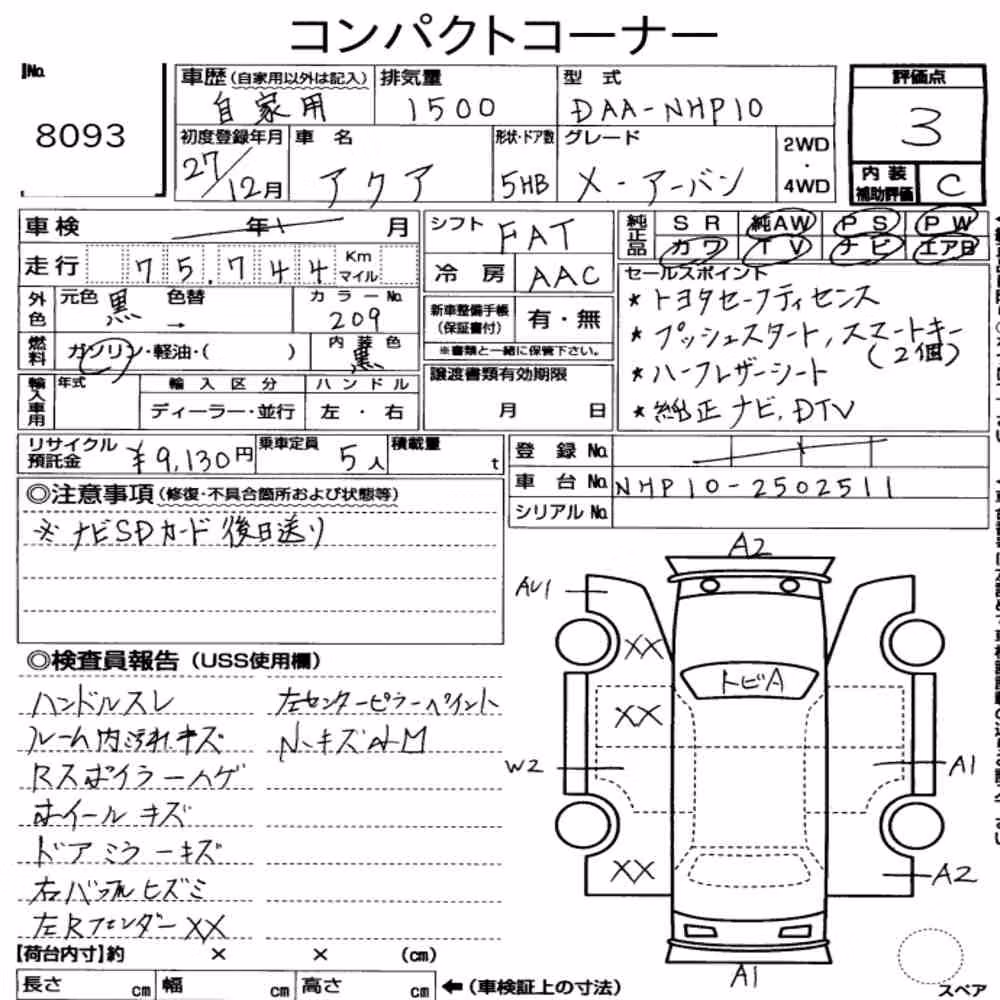 コンパクトコーナー
No.
8093
車歴(自家用以外は記入) 自家用
排気量 1500
型式 DAA-NHP10
評価点 3
初度登録年月 27/12月
車名 アクア
形状・ドア数 5HB
グレード X-アーバン
2WD・4WD
内装補助評価 C
車検 年 月
シフト FAT
純正品 SR 純AW PS PW
カワ TV ナビ エアB
走行 75,744 Km マイル
冷房 AAC
セールスポイント
* トヨタセーフティセンス
* プッシュスタート,スマートキー
(2個)
* ハーフレザーシート
* 純正ナビ,DTV
外色 元色 黒 色替 →
カラーNo. 209
新車整備手帳(保証書付) 有・無
※書類と一緒に保管下さい。
燃料 ガソリン・軽油・( )
内装色 黒
輸入車用 年式 輸入区分 ハンドル
ディーラー・並行 左・右
譲渡書類有効期限
月 日
リサイクル預託金 ¥9,130円
乗車定員 5人
積載量 t
登録No.
車台No. NHP10-2502511
シリアルNo.
◎注意事項(修復・不具合箇所および状態等)
※ナビSDカード後日送り
◎検査員報告(USS使用欄)
ハンドルスレ
ルーム内汚れキズ
Rスポイラーハゲ
ホイールキズ
ドアミラーキズ
右バックルヒズミ
左Rフェンダー XX
左センターピラーペイント
N、キズAM
A2
AU1
XX
トビA
XX
W2
A1
XX
A2
A1
スペア
【荷台内寸】約 × × (cm)
長さ cm 幅 cm 高さ cm ←(車検証上の寸法)